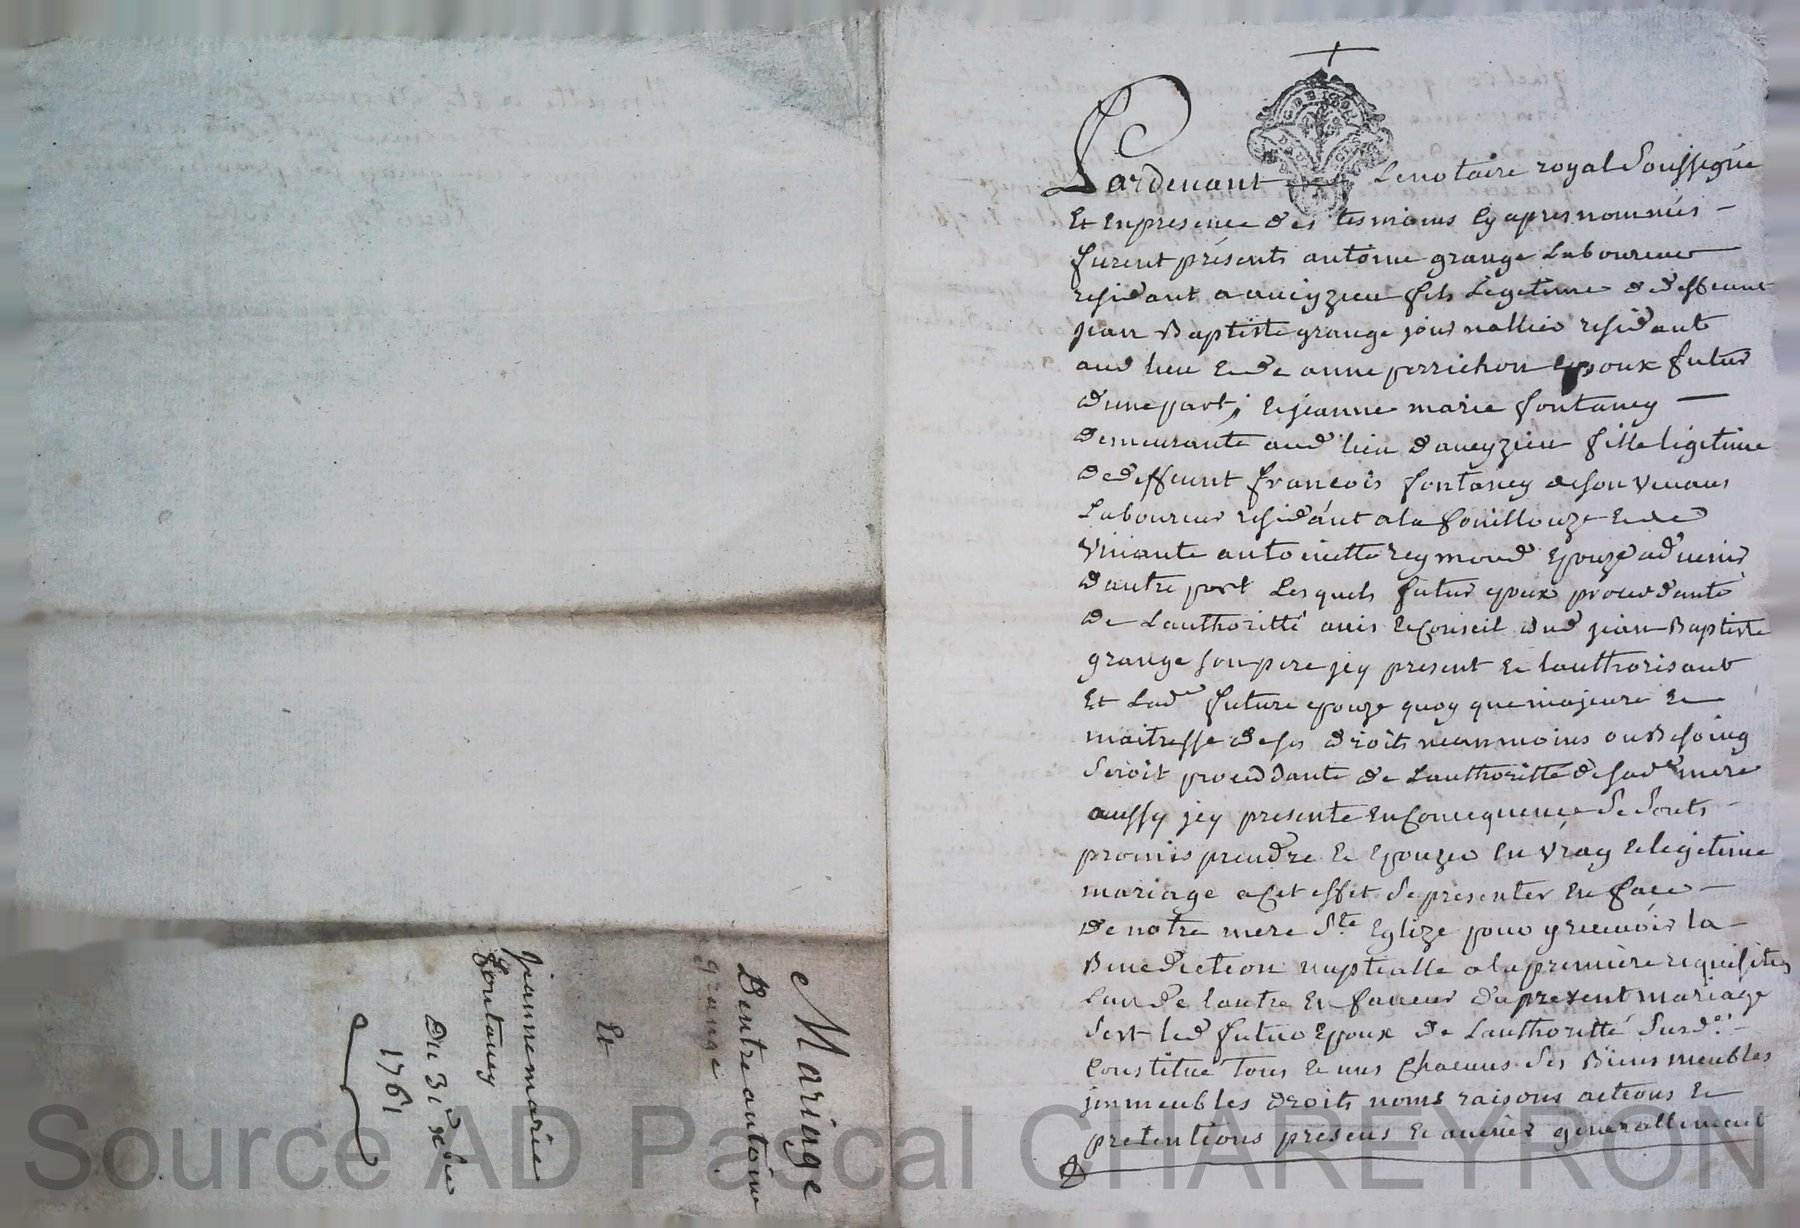 Mariage
Dentre antoine
grange
Et
jeanne marie
fontaney
Du 31 xbre
1761
Pardevant Le notaire royal Soussigné
Et En presence des tesmoins Cy apres nommés
furent présents antoine grange Laboureur
residant a aveyzieu fils Legitime de deffeunt
jean Baptiste grange journallier residant
aud lieu Et de anne perrichon Epoux futur
d'une part; Et jeanne marie fontaney
demeurante aud lieu d'aveyzieu fille legitime
de deffeunt francois fontaney de son vivant
Laboureur residant a la fouillouze Et de
vivante antoinette reymond Epouze advenir
d'autre part Lesquels futur epoux procedante
de Lauthoritté avis Et Conseil dud jean Baptiste
grange son pere jcy present Et lauthorisant
Et Lade future epouze quoy que majeure Et
maitresse de ses droits neanmoins ou Besoing
Seroit proceddante de Lauthoritté de sade mere
aussy jcy presente En Concequence Se Sonts
promis prendre Et Epouzer En vray Et legitime
mariage a Cet effet Se presenter En face
de notre mere Ste Eglize pour y recevoir la
Benediction nuptialle a la premiere requisition
Lun de lautre En faveur du present mariage
Sest led futur Epoux de Lauthoritté Susd.
Constitué tous Et uns Chacuns Ses Biens meubles
jmmeubles droits noms raisons actions Et
pretentions presens Et avenir generallement
Source AD Pascal CHAREYRON